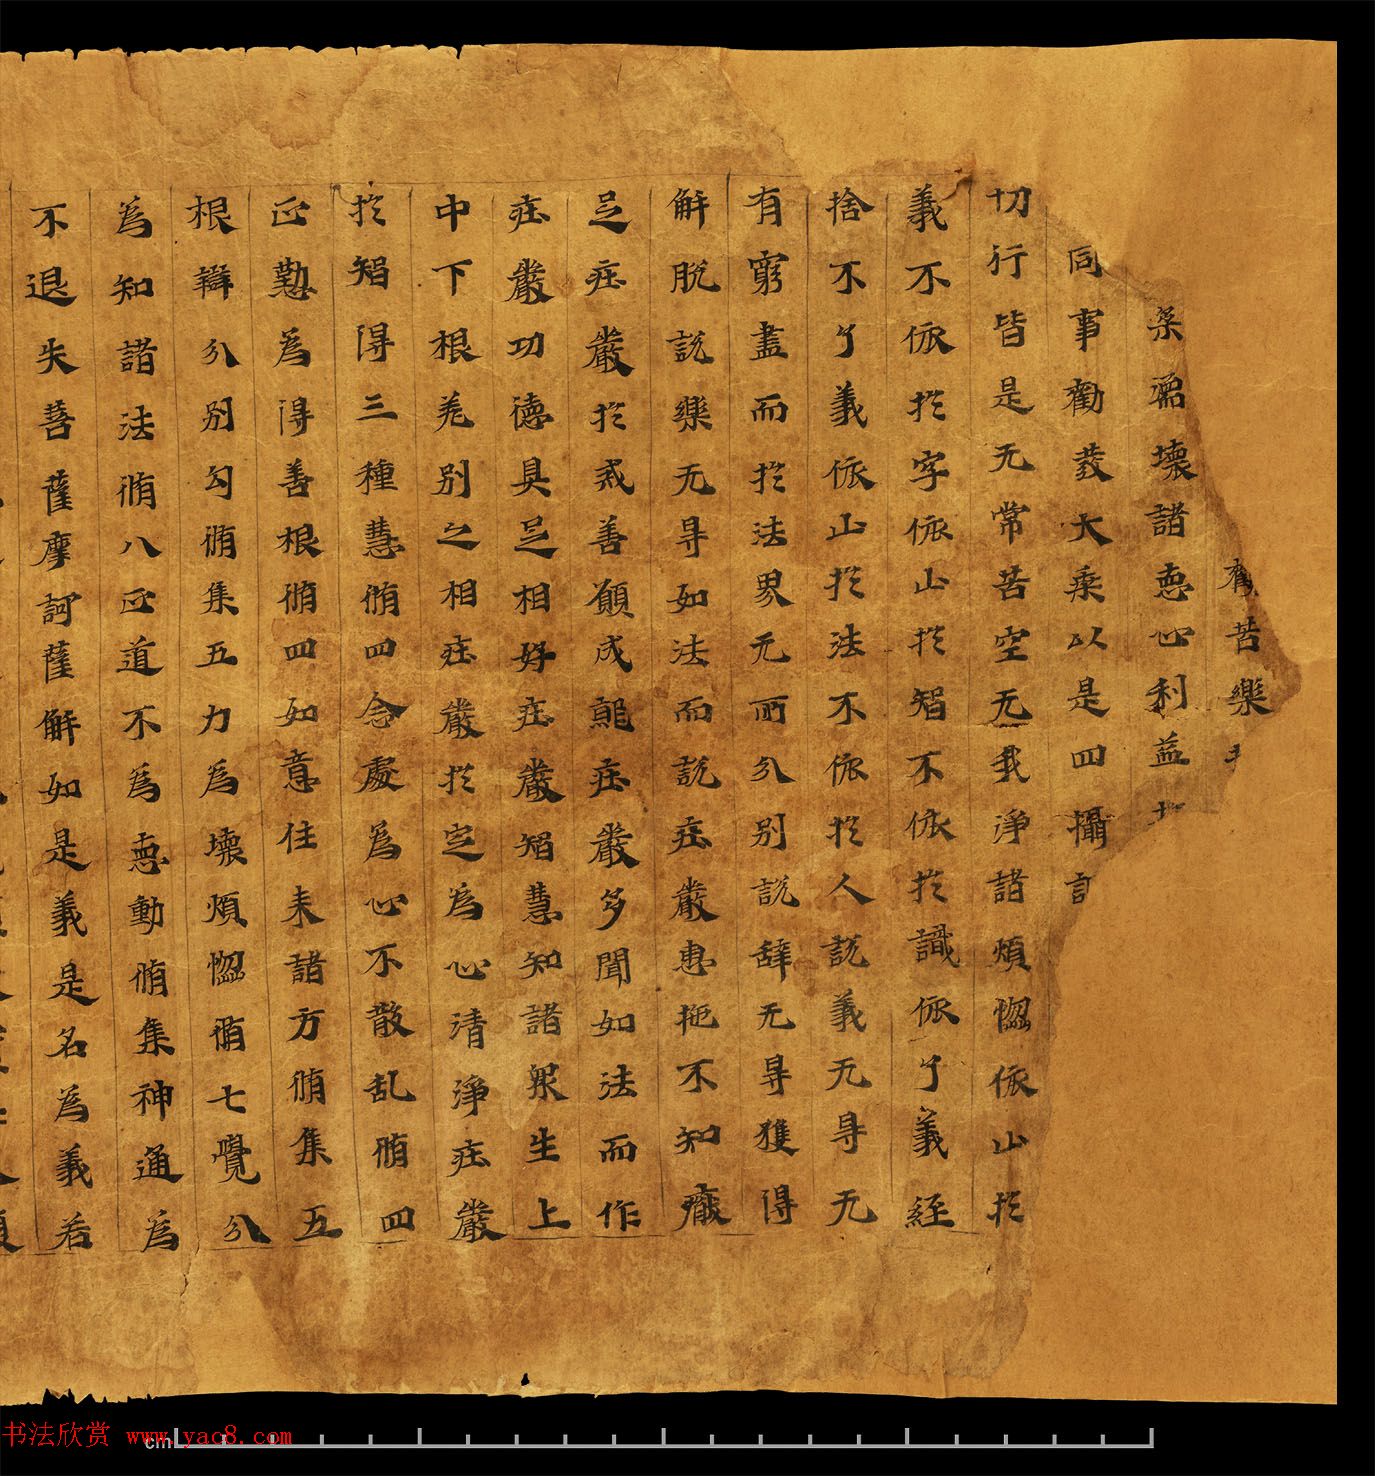 苦樂
柔濡壞諸惡心利益
同事勸發大乘以是四攝
切行皆是无常苦空无我淨諸煩惱依止於
義不依於字依止於智不依於識依了義經
捨不了義依止於法不依於人說義无㝵无
有窮盡而於法界无所分別說辞无㝵獲得
解脫說樂无㝵如法而說莊嚴惠施不知
足莊嚴於戒善願成就莊嚴多聞如法而作
莊嚴功德具足相好莊嚴智慧知諸眾生上
中下根差別之相莊嚴於定為心清淨莊嚴
於智得三種慧脩四念處為心不散乱脩四
正勤為得善根脩四如意往来諸方脩集五
根辯分別勾脩集五力為壞煩惱脩七覺分
為知諸法脩八正道不為惡動脩集神通為
不退失菩薩摩訶薩解如是義是名為義若
书法欣赏 www.yac8.com
cm